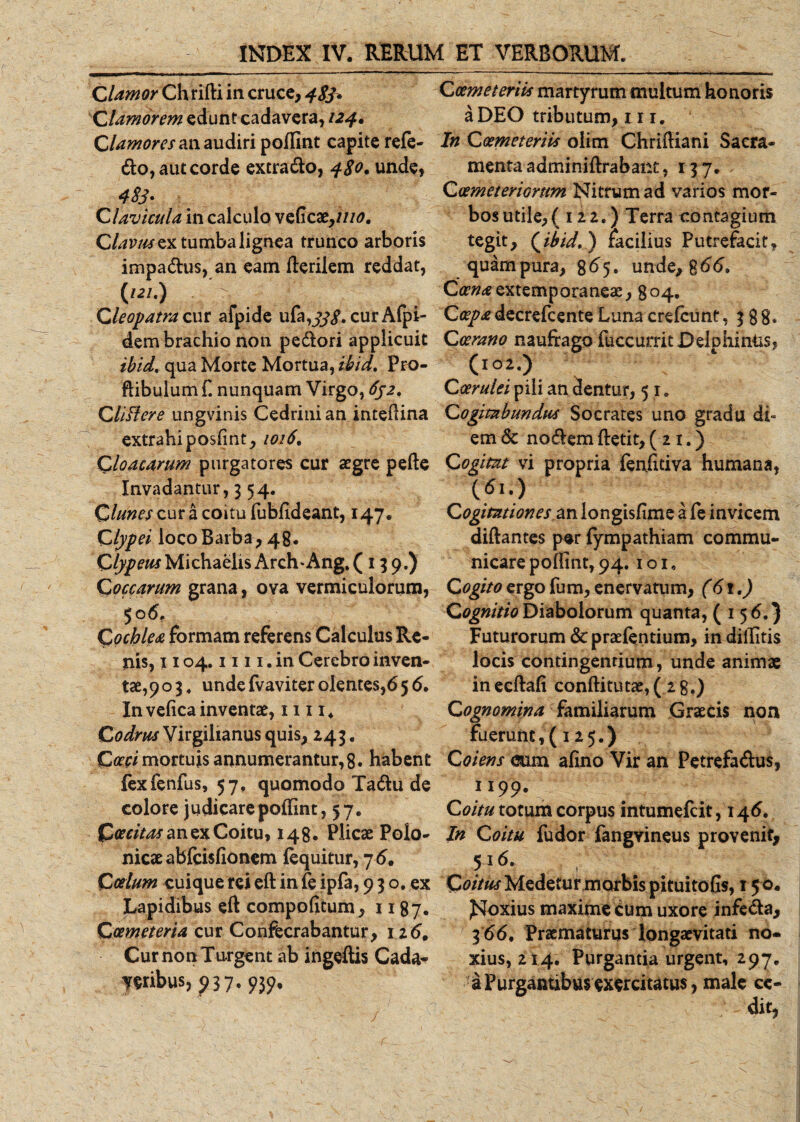 INDEX IV. RERUM ET VERBORUM.
Clamor Chriſti in cruce, 483.
Clamorem edunt cadavera, 124.
Clamores an audiri poſſint capite refe-
cto, aut corde extracto, 480. unde,
483.
Clavicula in calculo veſicæ, 1110.
Clavus ex tumba lignea trunco arboris
impactus, an eam ſterilem reddat,
(121.)
Cleopatra cur aſpide uſa, 338. cur Aſpi-
dem brachio non pectori applicuit
ibid. qua Morte Mortua, ibid. Pro-
ſtibulum ſ. nunquam Virgo, 652.
Cliſtere ungvinis Cedrini an inteſtina
extrahi posſint, 1016.
Cloacarum purgatores cur ægre peſte
Invadantur, 354.
Clunes cur à coitu ſubſideant, 147.
Clypei loco Barba, 48.
Clypeus Michaëlis Arch-Ang. (139.)
Coccarum grana, ova vermiculorum,
506.
Cochleæ formam referens Calculus Re-
nis, 1104. 1111. in Cerebro inven-
tæ, 903. unde ſvaviter olentes, 656.
In veſica inventæ, 1111.
Codrus Virgilianus quis, 243.
Cœci mortuis annumerantur, 8. habent
ſex ſenſus, 57. quomodo Tactu de
colore judicare poſſint, 57.
Cœcitas an ex Coitu, 148. Plicæ Polo-
nicæ abſcisſionem ſequitur, 76.
Cœlum cuique rei eſt in ſe ipſa, 930. ex
Lapidibus eſt compoſitum, 1187.
Cœmeteria cur Conſecrabantur, 126.
Cur non Turgent ab ingeſtis Cada-
veribus, 937. 939.
Cœmeteriis martyrum multum honoris
à DEO tributum, 111.
In Cœmeteriis olim Chriſtiani Sacra-
menta adminiſtrabant, 137.
Cœmeteriorum Nitrum ad varios mor-
bos utile, (122.) Terra contagium
tegit, (ibid.) facilius Putrefacit,
quàm pura, 865. unde, 866.
Cœnæ extemporaneæ, 804.
Cœpæ decreſcente Luna creſcunt, 388.
Cœrano naufrago ſuccurrit Delphinus,
(102.)
Cœrulei pili an dentur, 51.
Cogitabundus Socrates uno gradu di-
em & noctem ſtetit, (21.)
Cogitat vi propria ſenſitiva humana,
(61.)
Cogitationes an longisſime à ſe invicem
diſtantes per ſympathiam commu-
nicare poſſint, 94. 101.
Cogito ergo ſum, enervatum, (61.)
Cognitio Diabolorum quanta, (156.)
Futurorum & præſentium, in diſſitis
locis contingentium, unde animæ
in ecſtaſi conſtitutæ, (28.)
Cognomina familiarum Græcis non
fuerunt, (125.)
Coiens cum aſino Vir an Petrefactus,
1199.
Coitu totum corpus intumeſcit, 146.
In Coitu ſudor ſangvineus provenit,
516.
Coitus Medetur morbis pituitoſis, 150.
Noxius maxime cum uxore infecta,
366. Præmaturus longævitati no-
xius, 214. Purgantia urgent, 297.
à Purgantibus exercitatus, male ce-
dit,